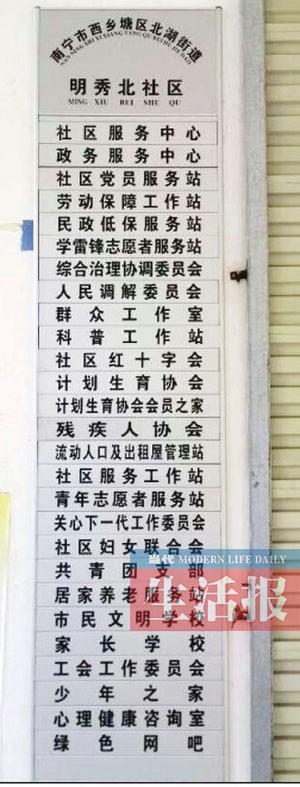 南宁市西乡塘区北湖街道
NAN NING SHI XI XIANG TANG QU BEI HU JIE DAO
明秀北社区
MING XIU BEI SHE QU
社区服务中心
政务服务中心
社区党员服务站
劳动保障工作站
民政低保服务站
学雷锋志愿者服务站
综合治理协调委员会
人民调解委员会
群众工作室
科普工作站
社区红十字会
计划生育协会
计划生育协会会员之家
残疾人协会
流动人口及出租屋管理站
社区服务工作站
青年志愿者服务站
关心下一代工作委员会
社区妇女联合会
共青团支部
居家养老服务站
市民文明学校
家长学校
工会工作委员会
少年之家
心理健康咨询室
绿色网吧
当代 MODERN LIFE DAILY
生活报